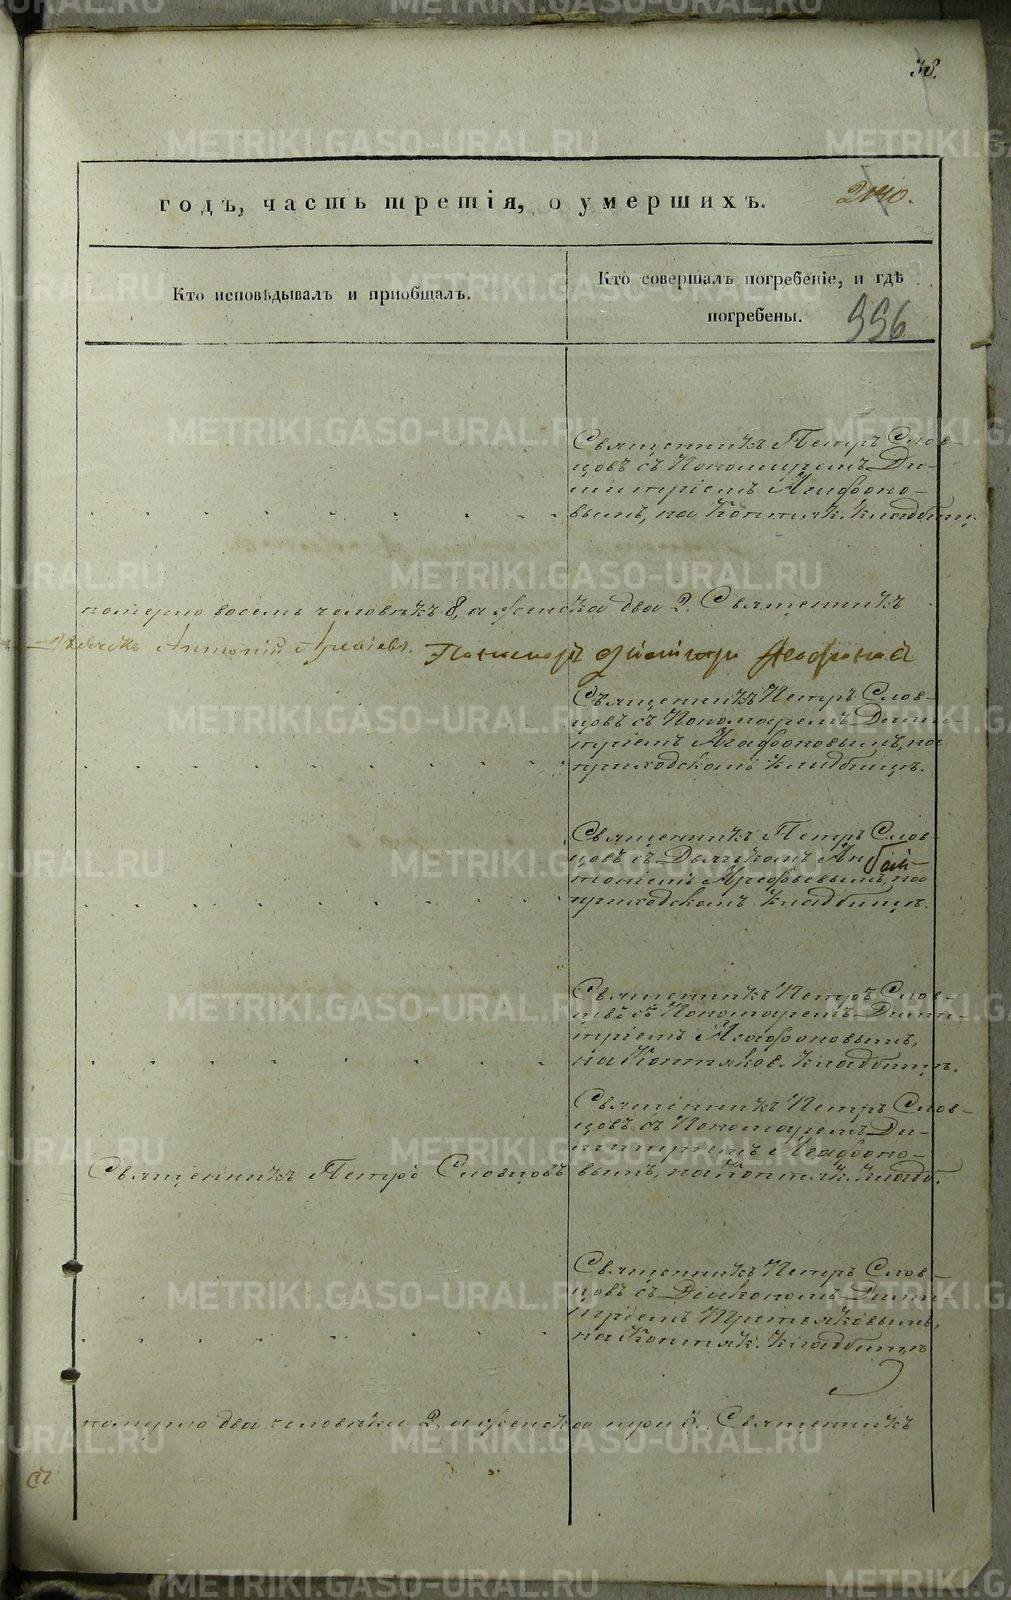 38.
годъ, часть третія, о умершихъ.
240.
Кто исповѣдывалъ и пріобщалъ.
Кто совершалъ погребеніе, и гдѣ
погребены.
996
Священникъ Петръ Слов-
цовъ съ Пономаремъ Ди-
митріемъ Агафоно-
вымъ, на Коптяк. кладбищ.
померло восемь человѣкъ 8, а женска два 2. Священникъ
Дьячекъ Антоній Арефьевъ. Пономарь Димитри Агафоновъ
Священникъ Петръ Слов-
цовъ съ Пономаремъ Дими-
тріемъ Агафоновымъ, на
приходскомъ кладбищѣ.
Священникъ Петръ Слов-
цовъ съ Дьячкомъ Ан-
тоніемъ Арефьевымъ, на
приходскомъ кладбищѣ.
Священникъ Петръ Слов-
цовъ съ Пономаремъ Дими-
тріемъ Агафоновымъ,
на Коптяков. кладбищѣ.
Священникъ Петръ Слов-
цовъ съ Пономаремъ Ди-
митріемъ Агафоно-
Священникъ Петръ Словцовъ вымъ, на Коптяк. кладб.
Священникъ Петръ Слов-
цовъ съ Діакономъ Дими-
тріемъ Третьяковымъ,
на Коптяк. кладбищѣ
померло два человѣка 2, а женска три 3. Священникъ
METRIKI.GASO-URAL.RU